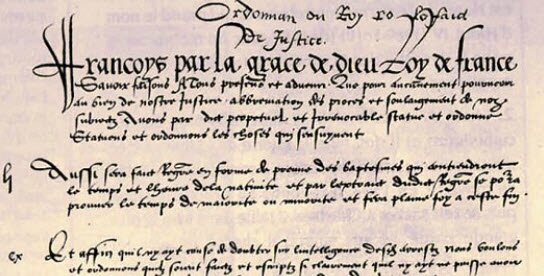 du Roy le faict
De Justice.
Francoys par la grace de dieu Roy de france
Scavoir faisons A tous presens et advenir. Que pour aucunement pourveoir
au bien de nostre Justice. abbreviation des proces et soulaigement de noz
subiectz Avons par edit perpetuel et Irrevocable statue et ordonne
Statuons et ordonnons les choses qui sensuyvent
li Aussi sera faict Regre en forme de preuve des baptesmes qui contiendront
le temps et lheure dela nativite et par lextraict dudict Regre se pora
prouver le temps de maiorite ou minorite et fera plaine foy a ceste fin.
cx Et affin quil ny ayt cause de doubter sur lintelligence desdz arrestz Nous voulons
et ordonnons quilz soient faictz et escriptz si clairement quil ny ayt ne puisse avoir